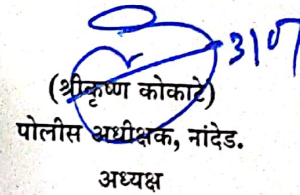 (श्रीकृष्ण कोकाटे)
पोलीस अधीक्षक, नांदेड.
अध्यक्ष